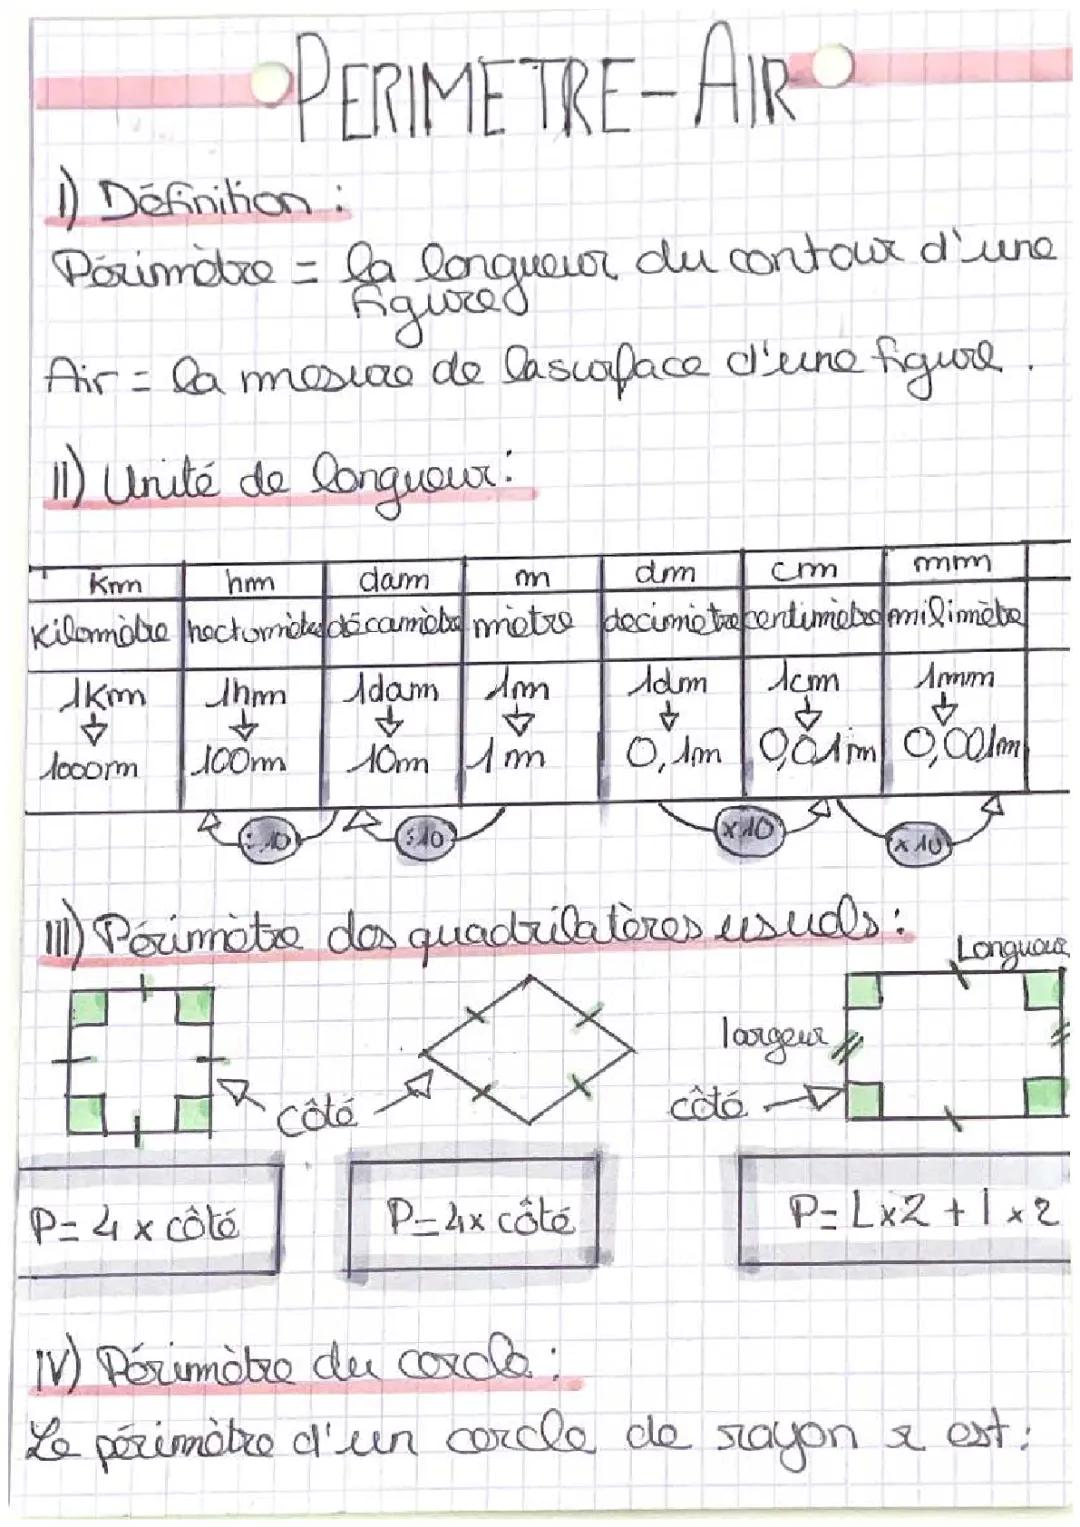 PERIMETRE-AIR
I) Définition :
Périmètre = la longueur du contour d'une
figure
Air = la mesure de la surface d'une figure.
II) Unité de longueur :
km hm dam m dm cm mm
kilomètre hectomètre décamètre mètre decimètre centimètre milimètre
1km 1hm 1dam 1m 1dm 1cm 1mm
1000m 100m 10m 1m 0,1m 0,01m 0,001m
:10 :10 x10 x10
III) Périmètre des quadrilatères usuels :
Longueur
largeur
côté côté
P= 4 x côté P= 4x côté P= Lx2 + l x 2
IV) Périmètre du cercle :
Le périmètre d'un cercle de rayon r est :